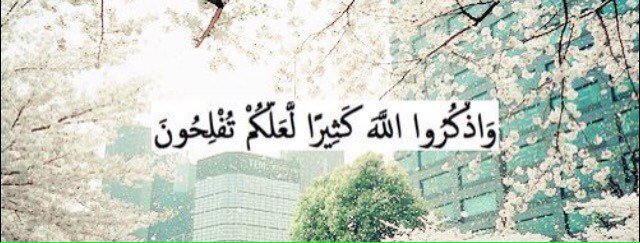 وَاذْكُرُوا اللَّهَ كَثِيرًا لَّعَلَّكُمْ تُفْلِحُونَ